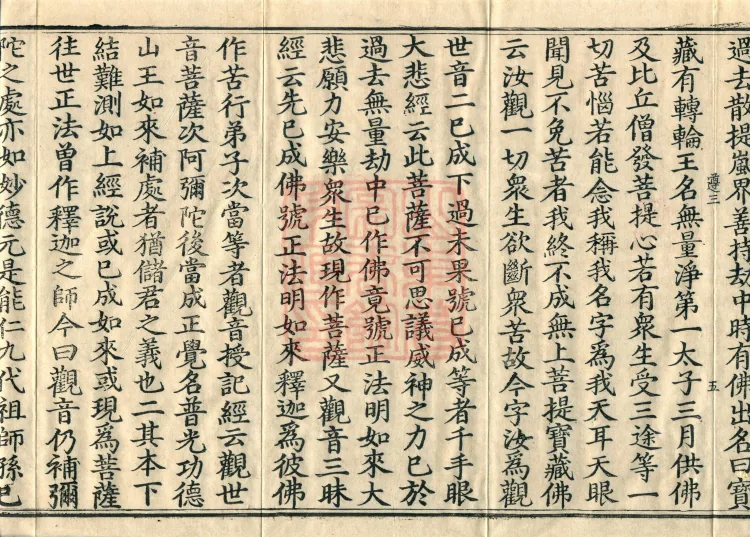 過去散提嵐界善持劫中時有佛出名曰寶
藏有轉輪王名無量淨第一太子三月供佛
遵三
五
及比丘僧發菩提心若有衆生受三途等一
切苦惱若能念我稱我名字爲我天耳天眼
聞見不免苦者我終不成無上菩提寶藏佛
云汝觀一切衆生欲斷衆苦故今字汝爲觀
世音二已成下過未果號已成等者千手眼
大悲經云此菩薩不可思議威神之力已於
過去無量劫中已作佛竟號正法明如來大
悲願力安樂衆生故現作菩薩又觀音三昧
經云先已成佛號正法明如來釋迦爲彼佛
作苦行弟子次當等者觀音授記經云觀世
音菩薩次阿彌陀後當成正覺名普光功德
山王如來補處者猶儲君之義也二其本下
結難測如上經說或已成如來或現爲菩薩
往世正法曾作釋迦之師今曰觀音仍補彌
陀之處亦如妙德元是能仁九代祖師孫已